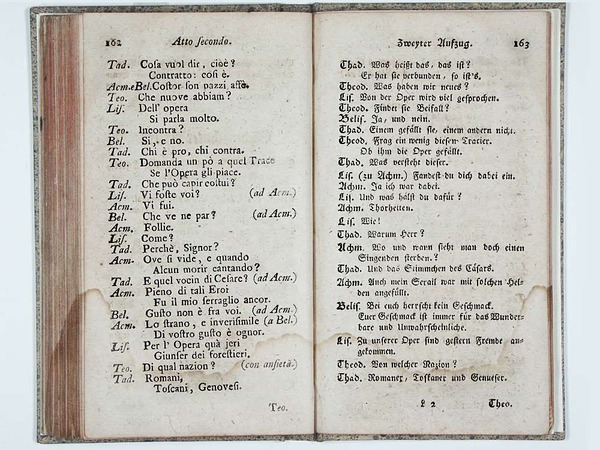 162 Atto secondo.
Tad. Cosa vuol dir, cioè?
Contratto: così è.
Acm.eBel. Costor son pazzi affè.
Teo. Che nuove abbiam?
Lis. Dell' opera
Si parla molto.
Teo. Incontra?
Bel. Si, e no.
Tad. Chi è pro, chi contra.
Teo. Domanda un pò a quel Trace
Se l'Opera gli piace.
Tad. Che può capir costui?
Lis. Vi foste voi? (ad Acm.)
Acm. Vi fui.
Bel. Che ve ne par? (ad Acm.)
Acm. Follie.
Lis. Come?
Tad. Perchè, Signor?
Acm. Ove si vide, e quando
Alcun morir cantando?
Tad. E quel vocin di Cesare? (ad Acm.)
Acm. Pieno di tali Eroi
Fu il mio serraglio ancor.
Bel. Gusto non è fra voi. (ad Acm.)
Acm. Lo strano, e inverisimile (a Bel.)
Di vostro gusto è ognor.
Lis. Per l' Opera quà jeri
Giunser dei forestieri.
Teo. Di qual nazion? (con ansietà.)
Tad. Romani,
Toscani, Genovesi.
Teo.
Zweyter Aufzug. 163
Thad. Was heißt das, das ist?
Er hat sie verbunden, so ist's.
Theod. Was haben wir neues?
Lis. Von der Oper wird viel gesprochen.
Theod. Findet sie Beifall?
Belis. Ja, und nein.
Thad. Einem gefällt sie, einem andern nicht.
Theod. Frag ein wenig diesen Tracier,
Ob ihm die Oper gefällt.
Thad. Was versteht dieser.
Lis. (zu Achm.) Fandest du dich dabei ein.
Achm. Ja ich war dabei.
Lis. Und was hälst du dafür?
Achm. Thorheiten.
Lis. Wie!
Thad. Warum Herr?
Achm. Wo und wann sieht man doch einen
Singenden sterben?
Thad. Und das Stimmchen des Cäsars.
Achm. Auch mein Serail war mit solchen Hel-
den angefüllt.
Belis. Bei euch herrscht kein Geschmack.
Euer Geschmack ist immer für das Wunder-
bare und Unwahrscheinliche.
Lis. Zu unserer Oper sind gestern Fremde an-
gekommen.
Theod. Von welcher Nazion?
Thad. Romaner, Toskaner und Genueser.
L 2 Theo.